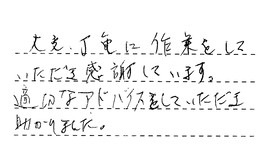 大先丁寧に作業をして
いただき感謝しています。
適切なアドバイスをしていただき
助かりました。